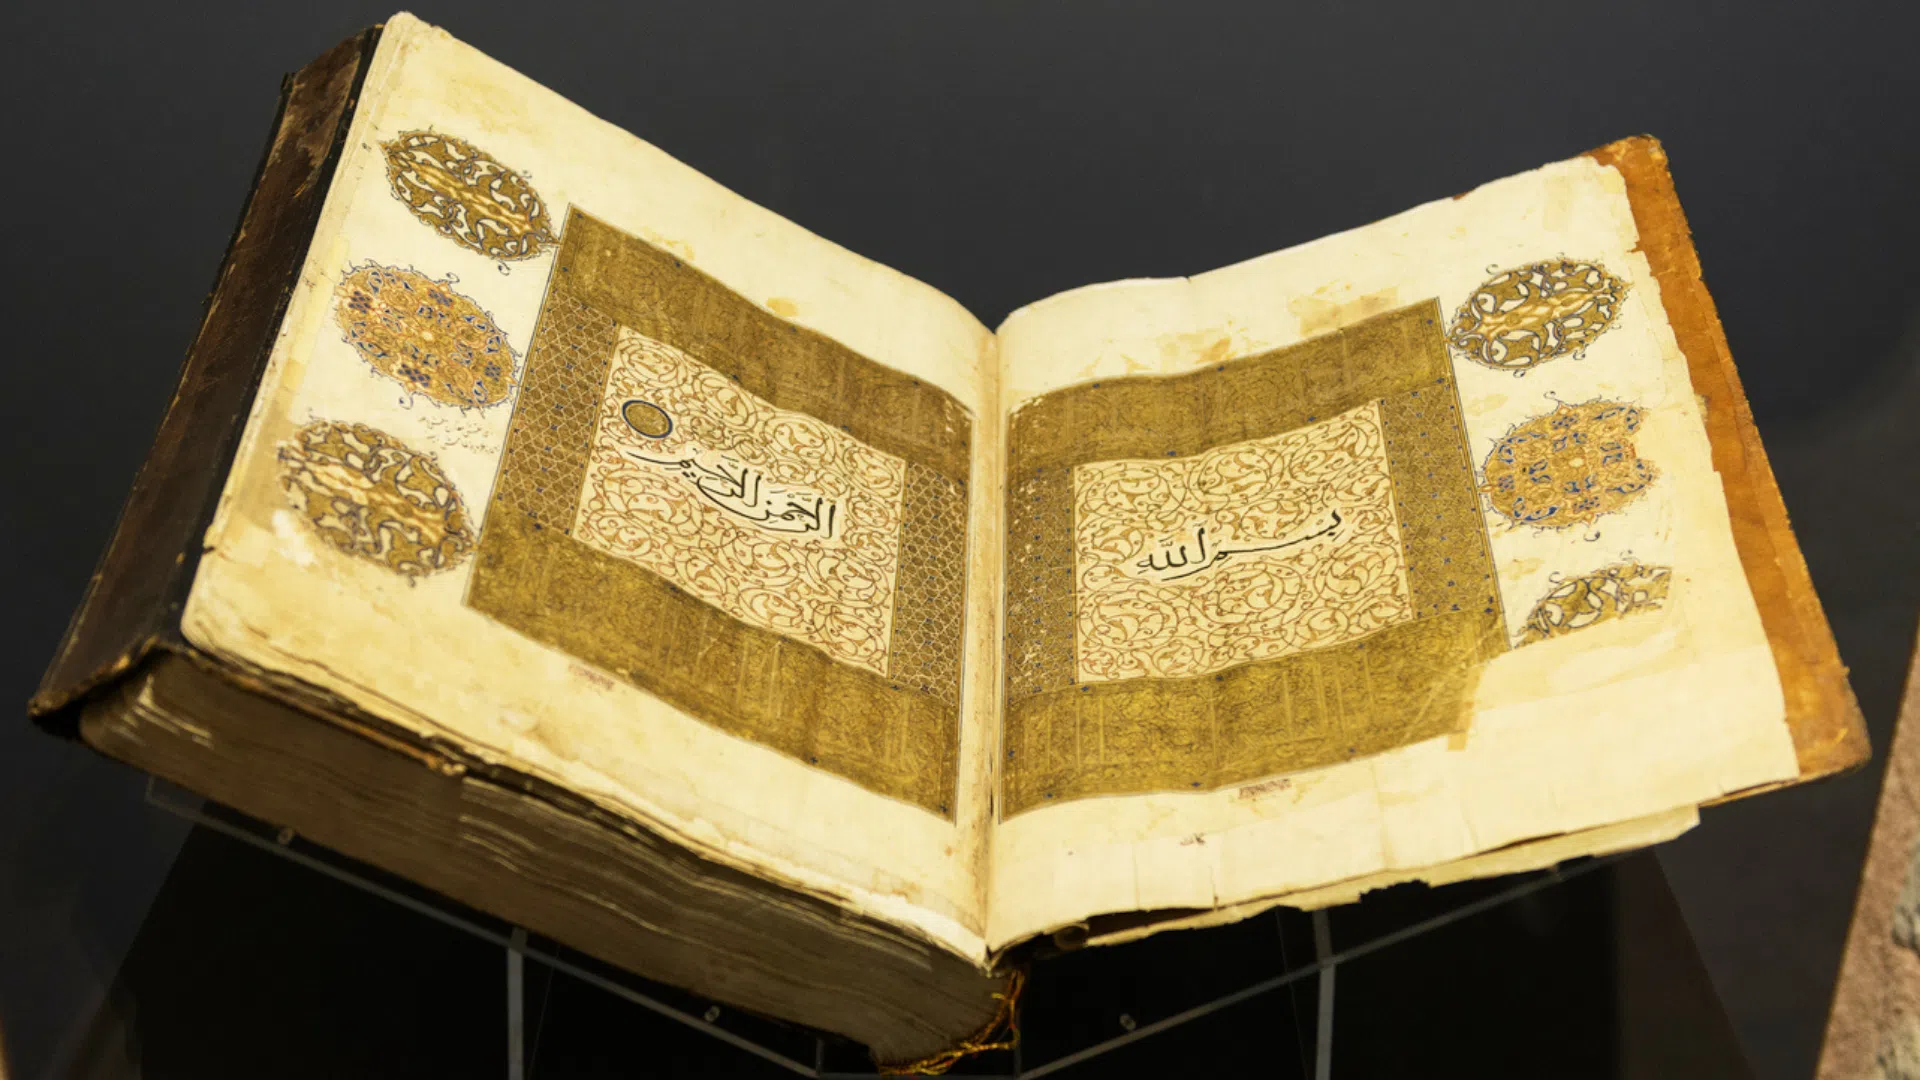 بسم الله
الرَّحْمَنِ الرَّحِيمِ